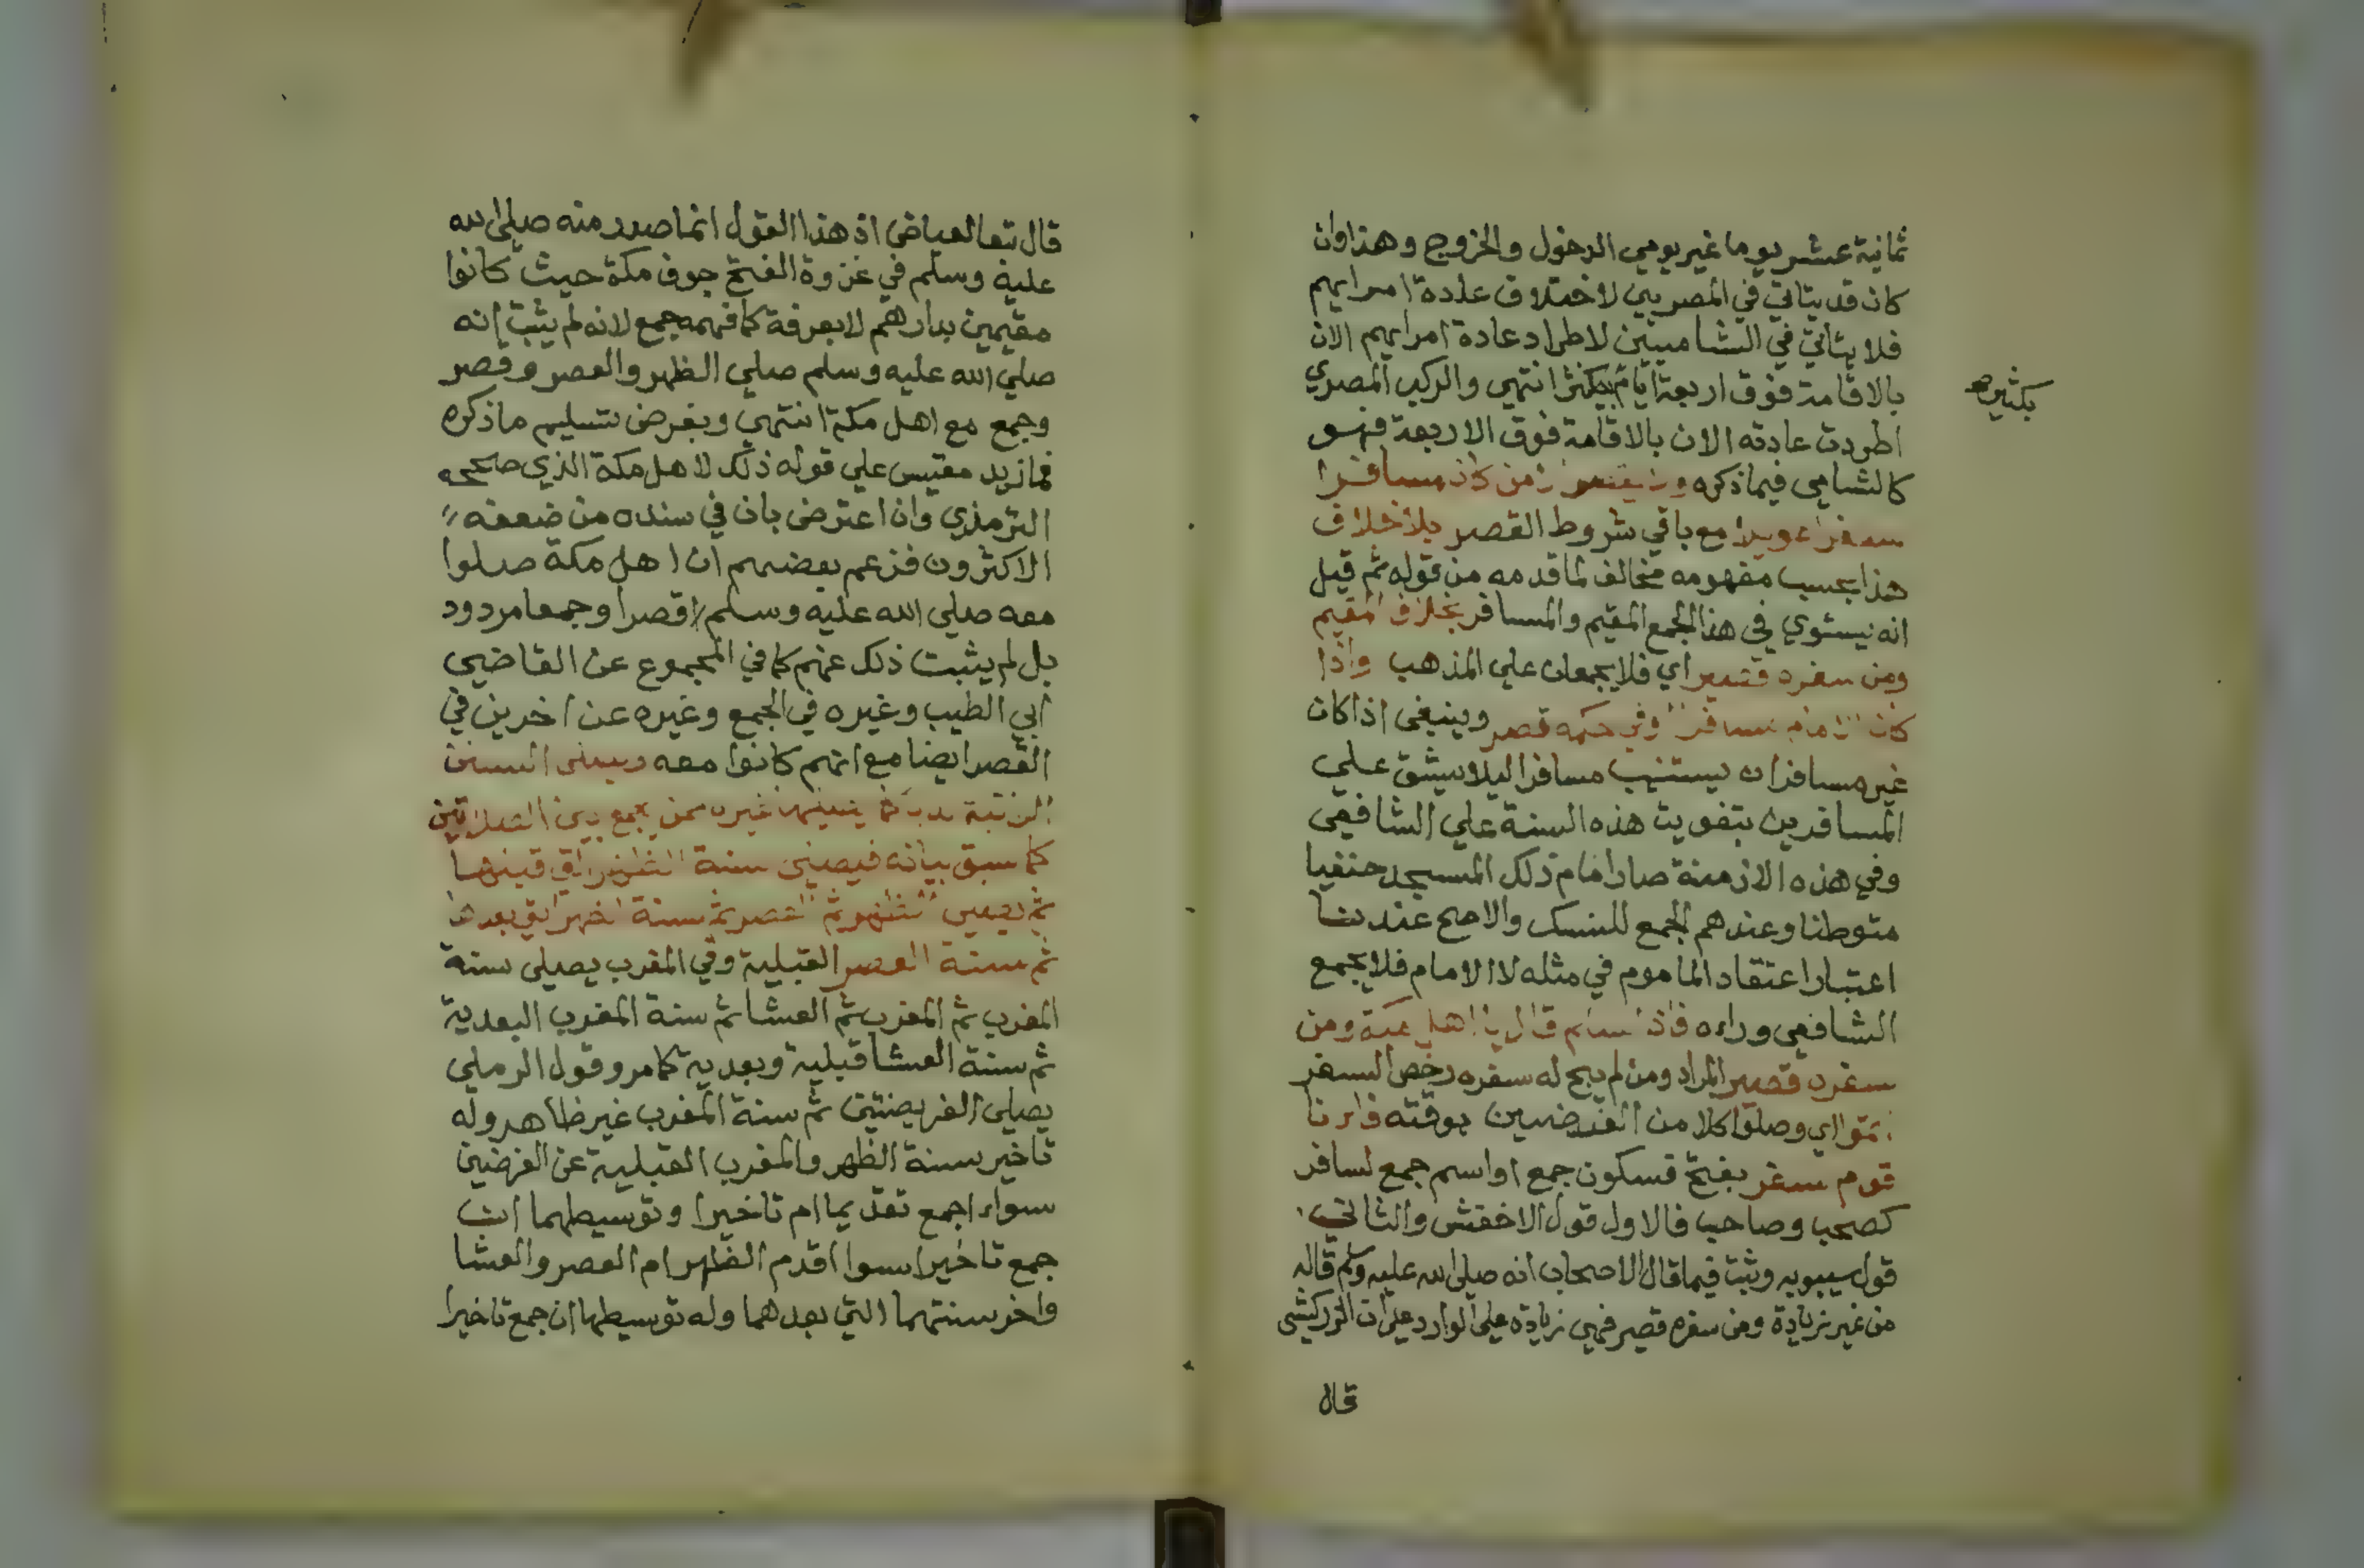 ثمانية عشر يوما غير يومي الدخول والخروج وهذا وان
كان قد يتاتي في المصريين لاختلاف عادة امرايهم
فلا يتاتي في الشاميين لاطراد عادة امرايهم الان
بالاقامة فوق اربعة ايام بكثير انتهي والركب المصري
بكثيره
اطردت عادته الان بالاقامة فوق الاربعة فهو
كالشامي فيما ذكره من كان مسافرا
سفرا طويلا مع باقي شروط القصر بلا خلاف
هذا بحسب مفهومه مخالف لما قدمه من قوله ثم قيل
انه يستوي في هذا الجمع المقيم والمسافر بخلاف المقيم
ومن سفره قصير اي فلا يجمعان علي المذهب واذا
كان الامام مسافرا وفي حكمه قصر وينبغي اذا كان
غير مسافر ان يستنيب مسافرا ليلا يشق علي
المسافرين بتفويت هذه السنة علي الشافعي
وفي هذه الازمنة صار امام ذلك المسجد حنفيا
متوطنا وعندهم الجمع للنسك والاصح عندنا
اعتبار اعتقاد الماموم في مثله لا الامام فلا يجمع
الشافعي وراءه فاذا سلم قال يا اهل مكة ومن
سفره قصير المراد ومن لم يبح له سفره رخص السفر
اتموا اي وصلوا كلا من الفرضين بوقته فانا
قوم سفر بفتح فسكون جمع او اسم جمع لسافر
كصحب وصاحب فالاول قول الاخفش والثاني
قول سيبويه وثبت فيما قال الاصحاب انه صلي الله عليه وسلم قاله
من غير زيادة ومن سفره قصير فهي زيادة علي الوارد علي ان الزركشي
قال
قال تبعا لعياض ان هذا القول انما صدر منه صلي الله
عليه وسلم في غزوة الفتح جوف مكة حيث كانوا
مقيمين بدارهم لا بعرفة كما فهمه جمع لانه لم يثبت انه
صلي الله عليه وسلم صلي الظهر والعصر وقصر
وجمع مع اهل مكة انتهي وبفرض تسليم ما ذكره
فما زيد مقيس علي قوله ذلك لاهل مكة الذي صححه
الترمذي وان اعترض بان في سنده من ضعفه
الاكثرون فزعم بعضهم ان اهل مكة صلوا
معه صلي الله عليه وسلم قصرا وجمعا مردود
بل لم يثبت ذلك عنهم كما في المجموع عن القاضي
ابي الطيب وغيره في الجمع وغيره عن اخرين في
القصر ايضا مع انهم كانوا معه ويصلي السنن
الراتبة كما يصليها غيره ممن يجمع بين الصلاتين
كما سبق بيانه فيصلي سنة الظهر التي قبلها
ثم يصلي الظهر ثم العصر ثم سنة الظهر التي بعدها
ثم سنة العصر القبلية وفي المغرب يصلي سنة
المغرب ثم المغرب ثم العشا ثم سنة المغرب البعدية
ثم سنة العشا قبلية وبعدية كما مر وقول الرملي
يصلي الفريضتين ثم سنة المغرب غير ظاهر وله
تاخير سنة الظهر والمغرب القبلية عن الفرضين
سواء اجمع تقديما ام تاخيرا وتوسيطهما ان
جمع تاخيرا سوا اقدم الظهر ام العصر والعشا
واخر سنتهما التي بعدهما وله توسيطها ان جمع تاخيرا